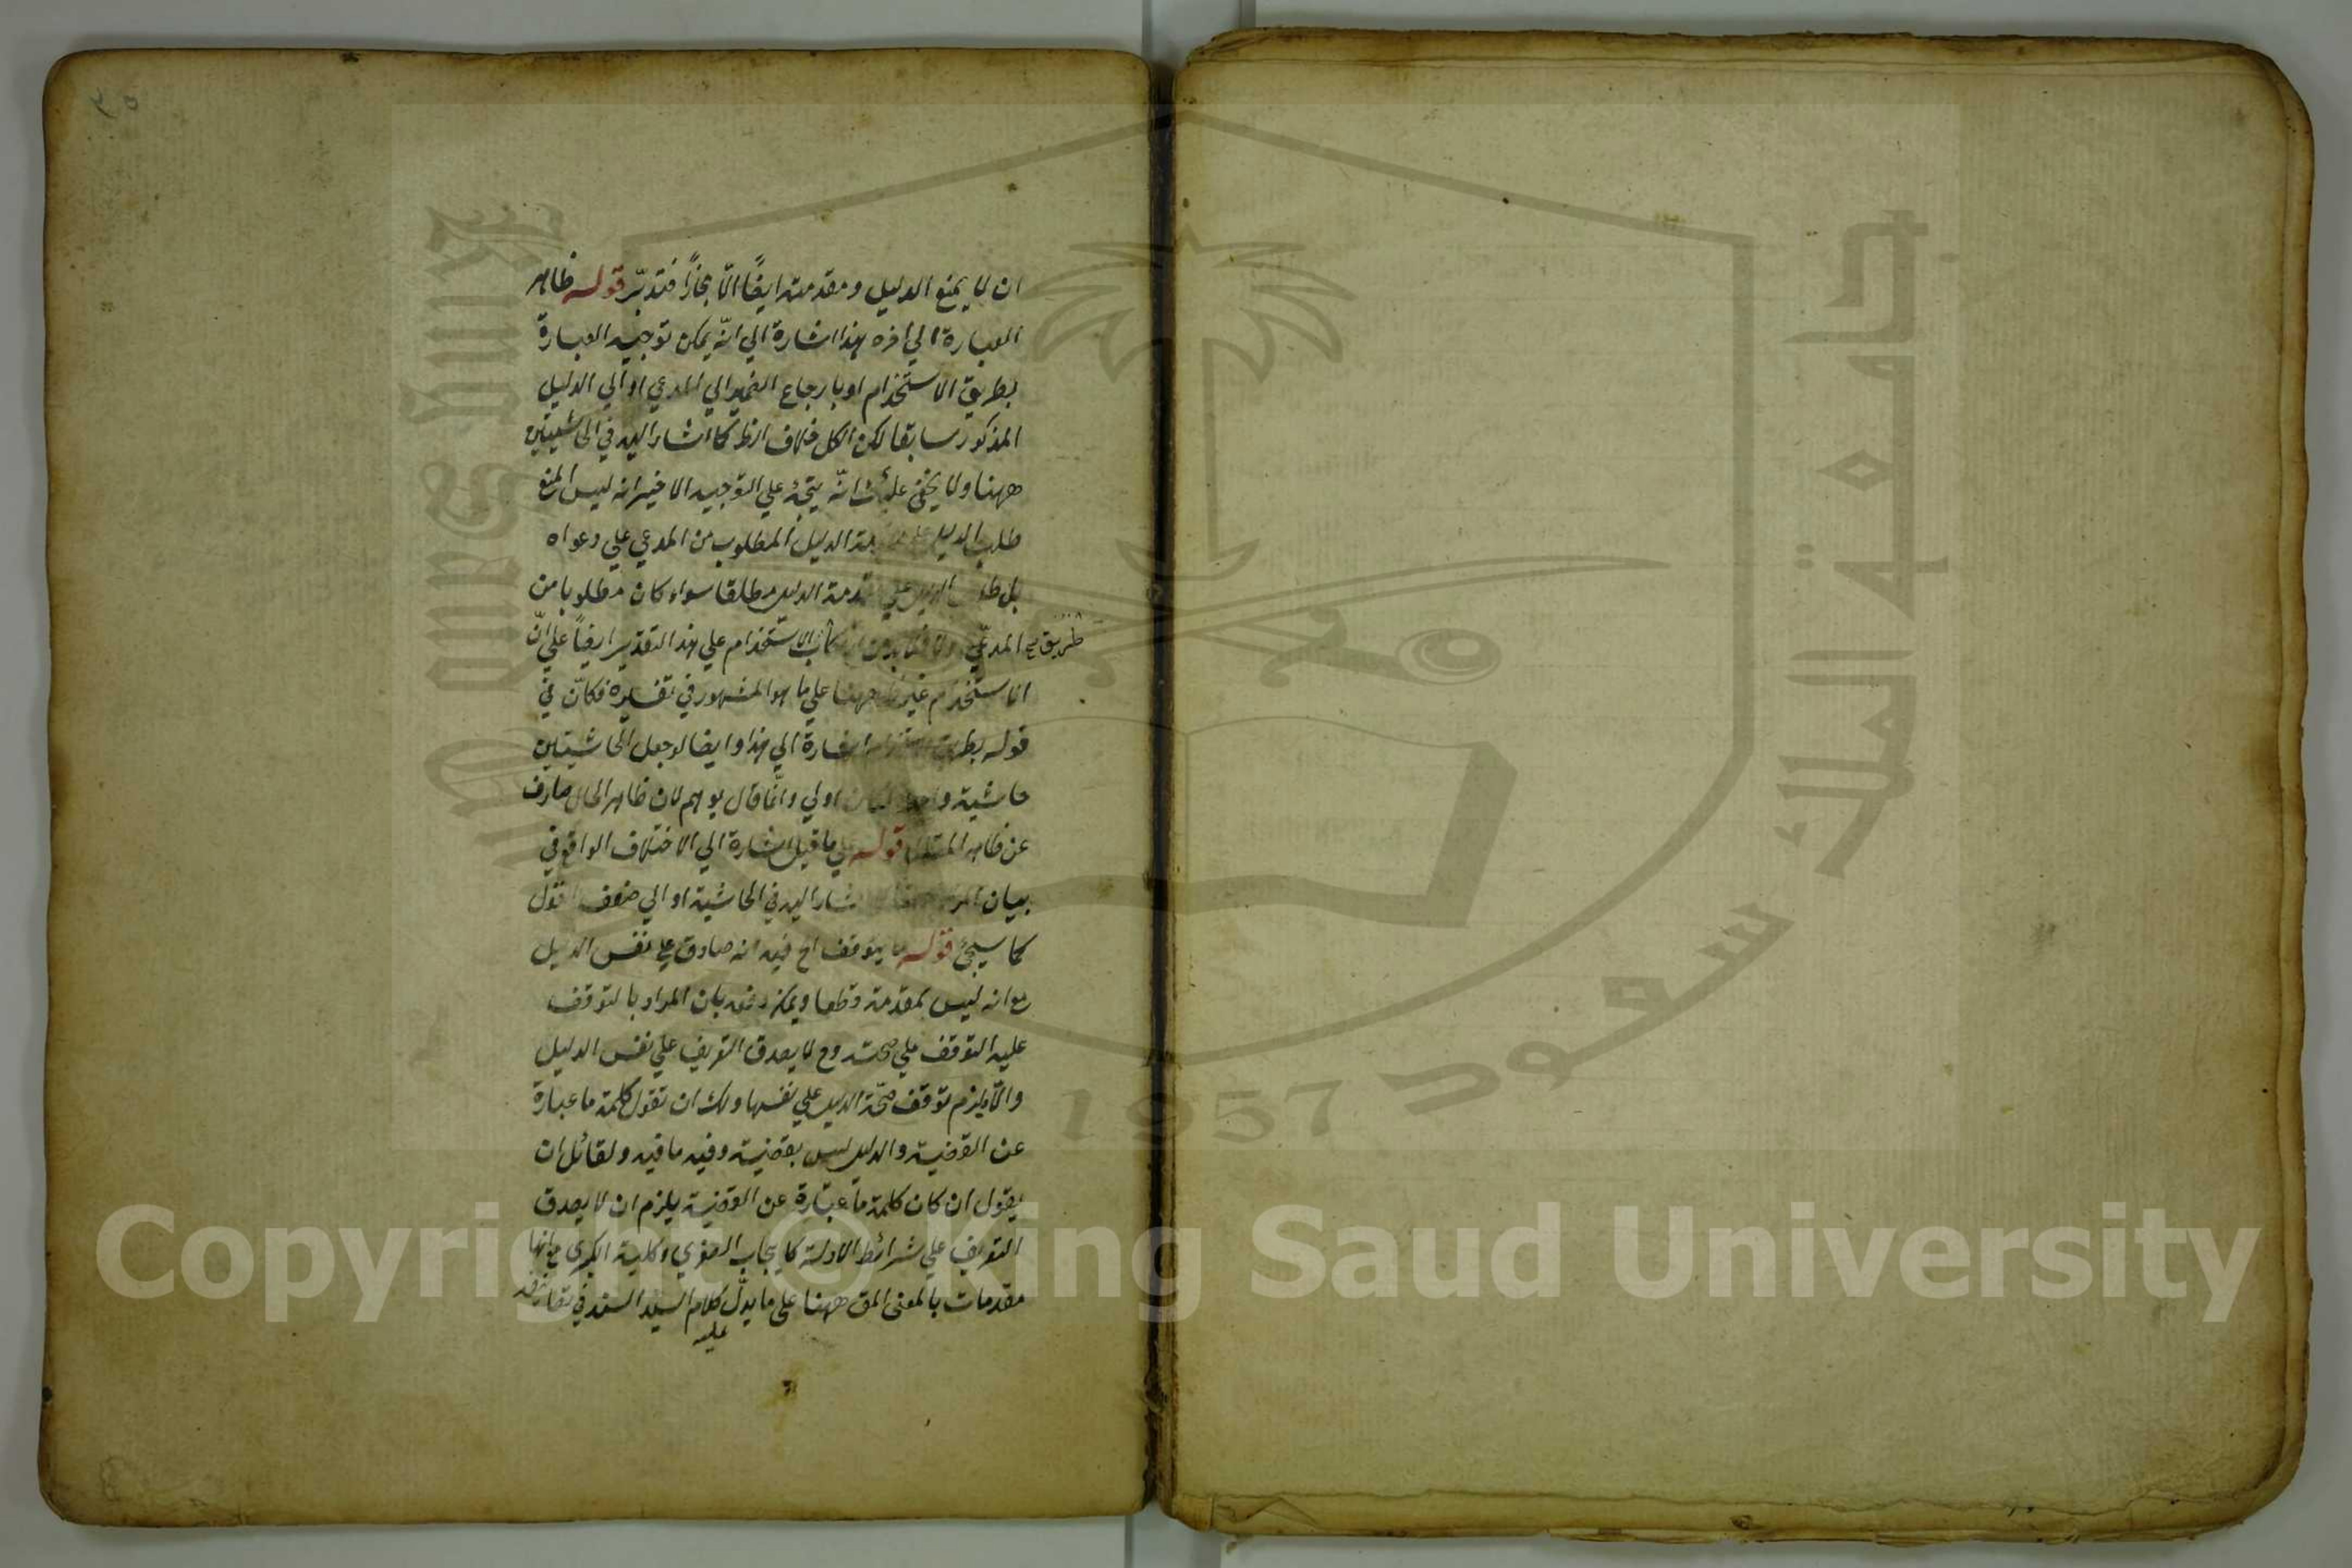 ان لا يمنع الدليل ومقدمته ايضًا الّا مجازًا فتدبّر قوله ظاهر
العبارة الى اخره هذا اشارة الي انّه يمكن توجيه العبارة
بطريق الاستخدام او بارجاع الضمير الي المدعي او الي الدليل
المذكور سابقا لكن الكل خلاف الظ كما اشار اليه في الحاشيتين
ههنا ولا يخفى عليك انّه يتجه علي التوجيه الاخير انه ليس المنع
طلب الدليل مة الدليل المطلوب من المدعي علي دعواه
بل طلب الدليل علي مقدمة الدليل مطلقا سواء كان مطلوبا من
المدعي الاستخدام علي هذا التقدير ايضاً علي انّ
طريق صح
الاستخدام غير ههنا علي ما هو المشهور في تفسيره فكانّ في
قوله بطريق اشارة الي هذا وايضا لو جعل الحاشيتين
حاشية واحدة لكان اولي وانّما قال يوهم لان ظاهر الحال صارف
عن ظاهر المقال قوله علي ما قيل اشارة الي الاختلاف الواقع في
بيان اشار اليه في الحاشية او الي ضعف القول
كما سيجئ قوله ما يتوقف اﻟﺦ فيه انه صادق علي نفس الدليل
مع انه ليس بمقدمة قطعا ويمكن دفعه بان المراد بالتوقف
عليه التوقف علي صحته وح لا يصدق التعريف علي نفس الدليل
والّا يلزم توقف صحّة الدليل علي نفسها ولك ان تقول كلمة ما عبارة
عن القضية والدليل ليس بقضية وفيه ما فيه ولقائل ان
يقول ان كان كلمة ما عبارة عن القضية يلزم ان لا يصدق
التعريف علي شرائط الادلة كايجاب الصغري وكلية الكبرى مع انها
مقدمات بالمعنى المق ههنا على ما يدلّ كلام السيد السند في
عليه
جامعة الملك سعود
King Saud University
1957
Copyright © King Saud University